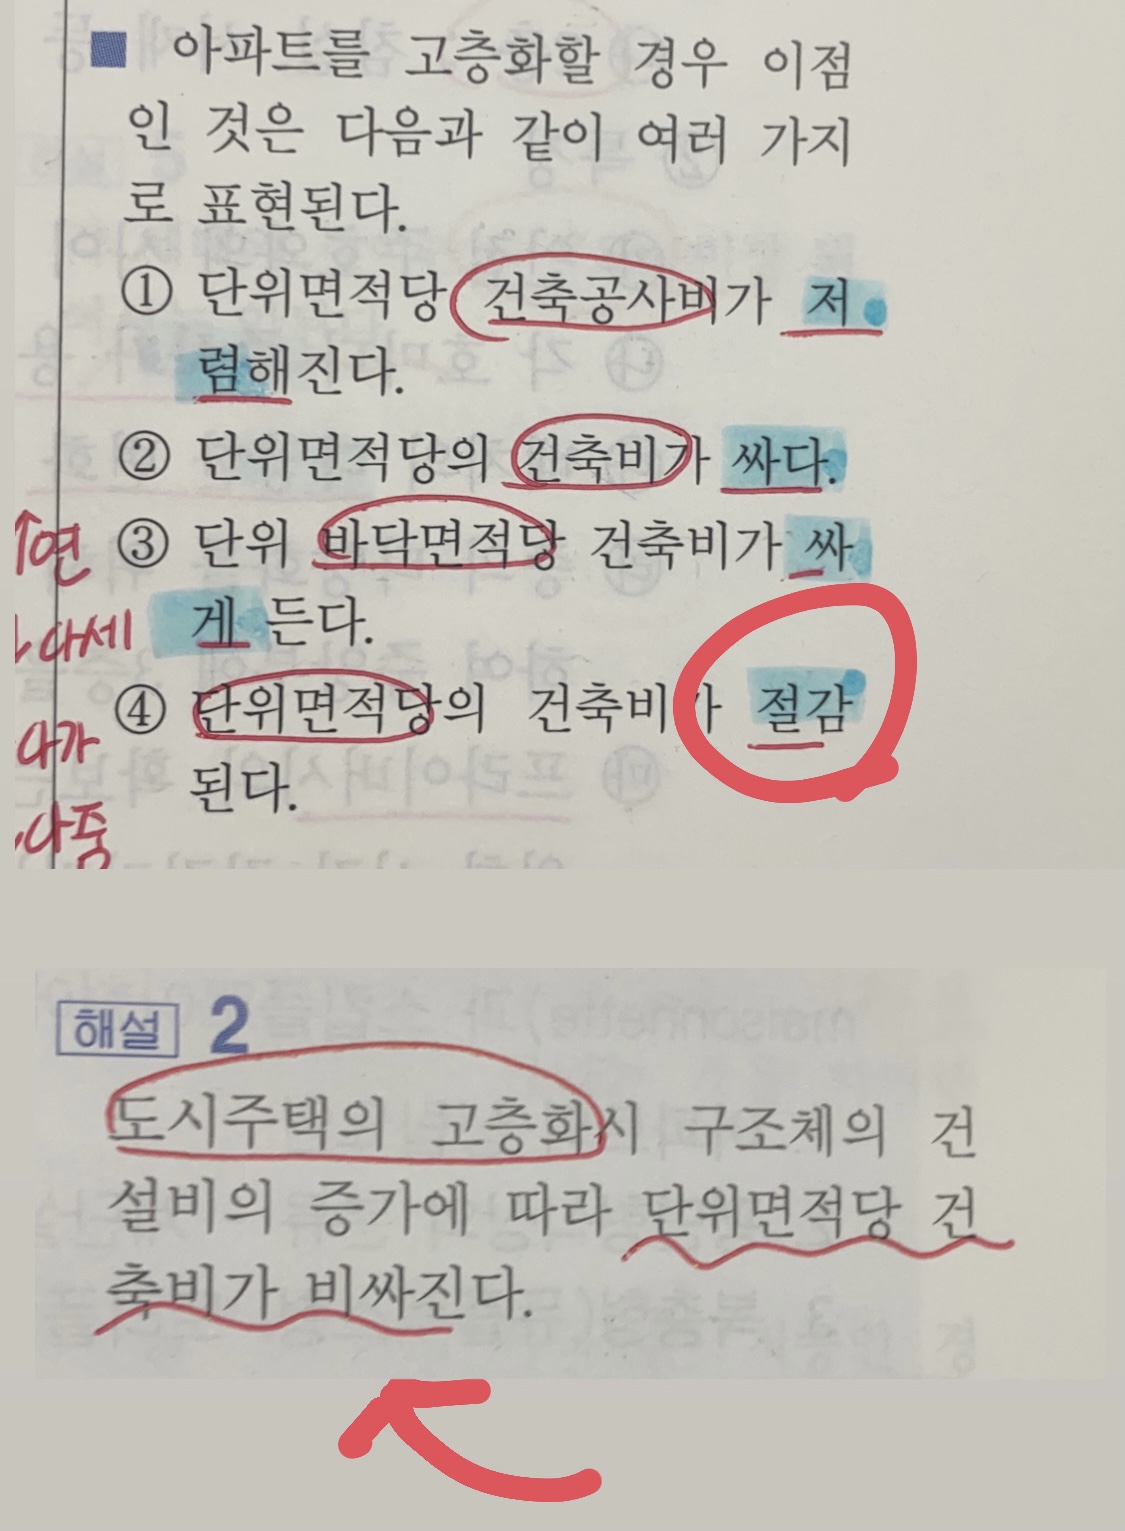 ■ 아파트를 고층화할 경우 이점
인 것은 다음과 같이 여러 가지
로 표현된다.
① 단위면적당 건축공사비가 저
렴해진다.
② 단위면적당의 건축비가 싸다.
③ 단위 바닥면적당 건축비가 싸
게 든다.
④ 단위면적당의 건축비가 절감
된다.
↑연
다세
다가
다중
해설 2
도시주택의 고층화시 구조체의 건
설비의 증가에 따라 단위면적당 건
축비가 비싸진다.